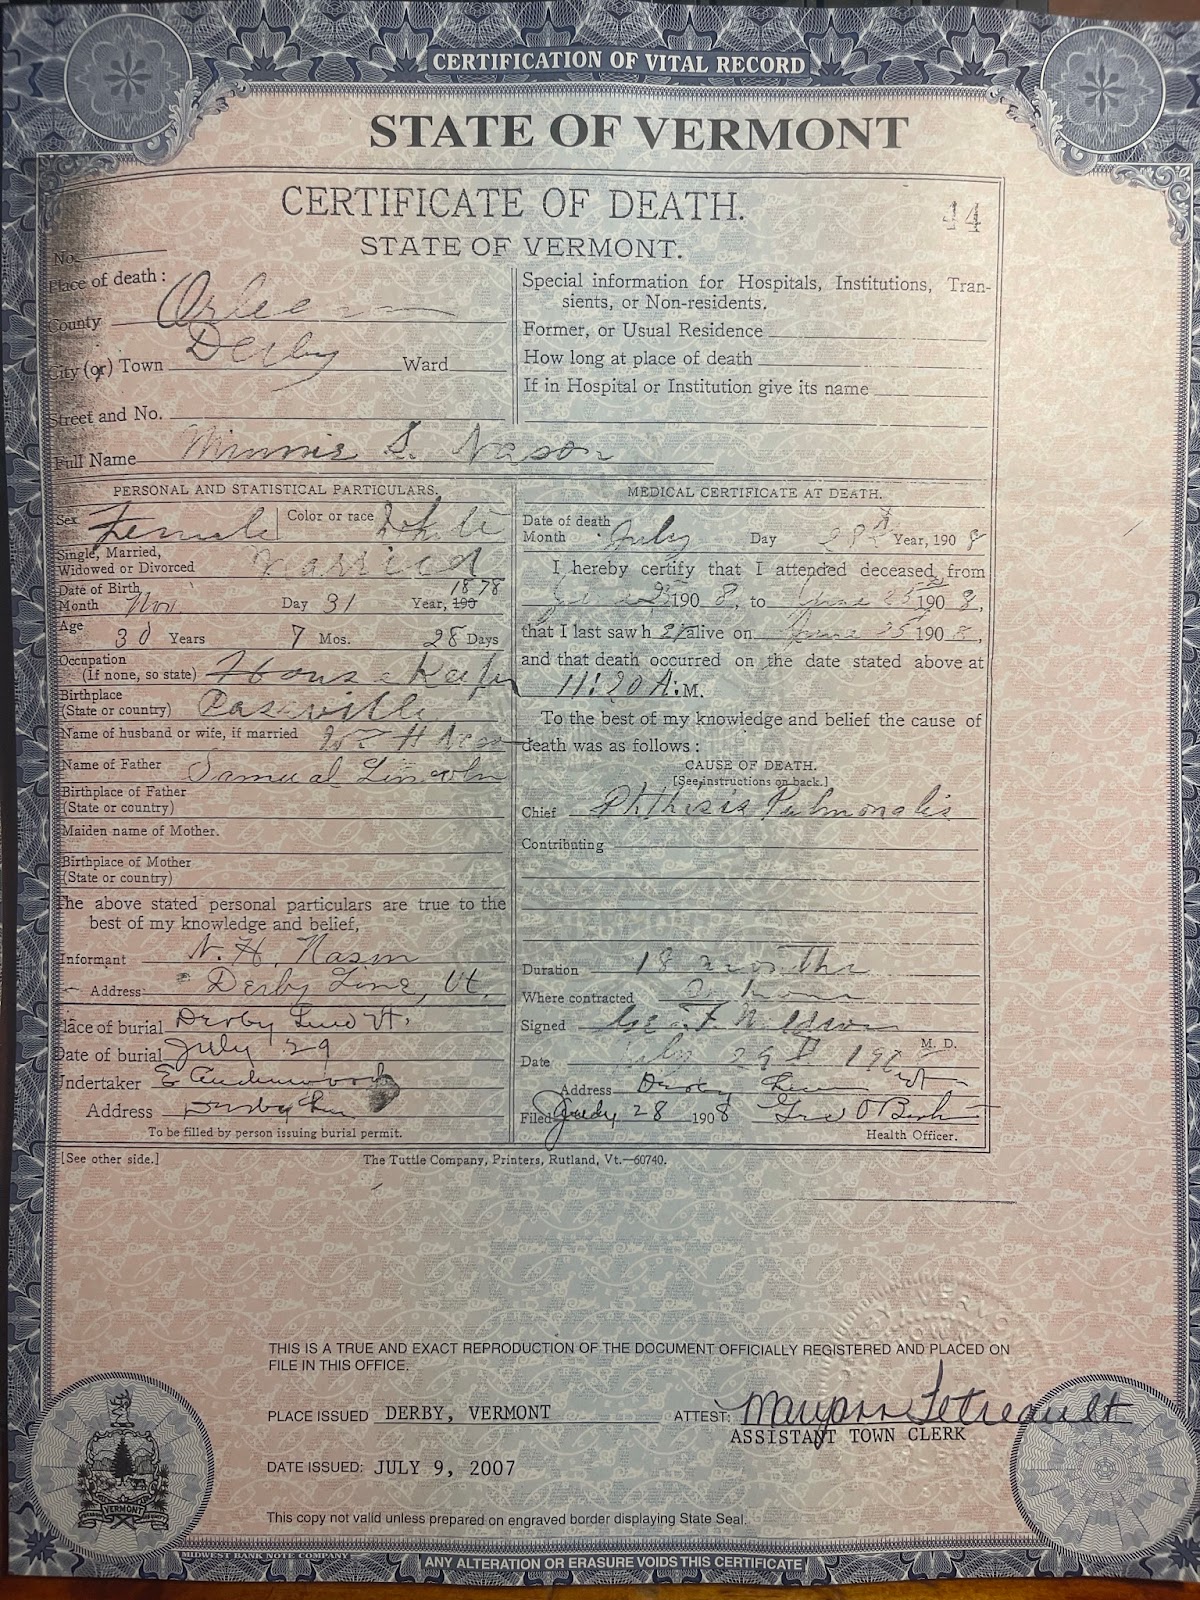 CERTIFICATION OF VITAL RECORD
STATE OF VERMONT
CERTIFICATE OF DEATH.
44
STATE OF VERMONT.
No.
Place of death:
County Orleans
City (or) Town Derby Ward
Street and No.
Special information for Hospitals, Institutions, Tran-
sients, or Non-residents.
Former, or Usual Residence
How long at place of death
If in Hospital or Institution give its name
Full Name Minnie S. Nason
PERSONAL AND STATISTICAL PARTICULARS.
Sex Female Color or race White
Single, Married,
Widowed or Divorced Married
Date of Birth 1878
Month Nov. Day 31 Year, 190
Age
30 Years 7 Mos. 28 Days
Occupation
(If none, so state) House Keeper
Birthplace
(State or country)
Name of husband or wife, if married
Name of Father Samuel Lincoln
Birthplace of Father
(State or country)
Maiden name of Mother.
Birthplace of Mother
(State or country)
The above stated personal particulars are true to the
best of my knowledge and belief,
Informant N. H. Nason
Address Derby Line, Vt.
Place of burial Derby Line Vt.
Date of burial July 29
Undertaker
Address Derby Line
To be filled by person issuing burial permit.
MEDICAL CERTIFICATE AT DEATH.
Date of death
Month July Day 28 Year, 1908
I hereby certify that I attended deceased from
1908, to June 25 1908,
that I last saw h er alive on June 25 1908,
and that death occurred on the date stated above at
11:20 A.M.
To the best of my knowledge and belief the cause of
death was as follows:
CAUSE OF DEATH.
[See instructions on back.]
Chief Phthisis Pulmonalis
Contributing
Duration 18 months
Where contracted
Signed
M. D.
Date July 29 1908
Address Derby Line Vt
Filed July 28 1908
Health Officer.
[See other side.] The Tuttle Company, Printers, Rutland, Vt.—60740.
THIS IS A TRUE AND EXACT REPRODUCTION OF THE DOCUMENT OFFICIALLY REGISTERED AND PLACED ON
FILE IN THIS OFFICE.
PLACE ISSUED DERBY, VERMONT ATTEST: Maryann Tetreault
ASSISTANT TOWN CLERK
DATE ISSUED: JULY 9, 2007
This copy not valid unless prepared on engraved border displaying State Seal.
VERMONT
MIDWEST BANK NOTE COMPANY
ANY ALTERATION OR ERASURE VOIDS THIS CERTIFICATE